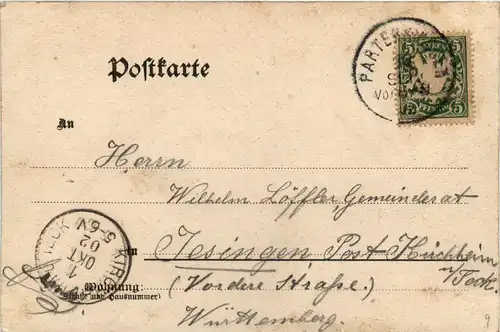 Postkarte
PARTENKI
5 BAYERN 5
An
Herrn
Wilhelm Löffler, Gemeinderat
in Jesingen Post Kirchheim
u/Teck.
(Vordere Straße.)
Wohnung:
(Straße und Hausnummer)
Württemberg.
KIRCH TECK
1 OKT 02
5-6 V
9